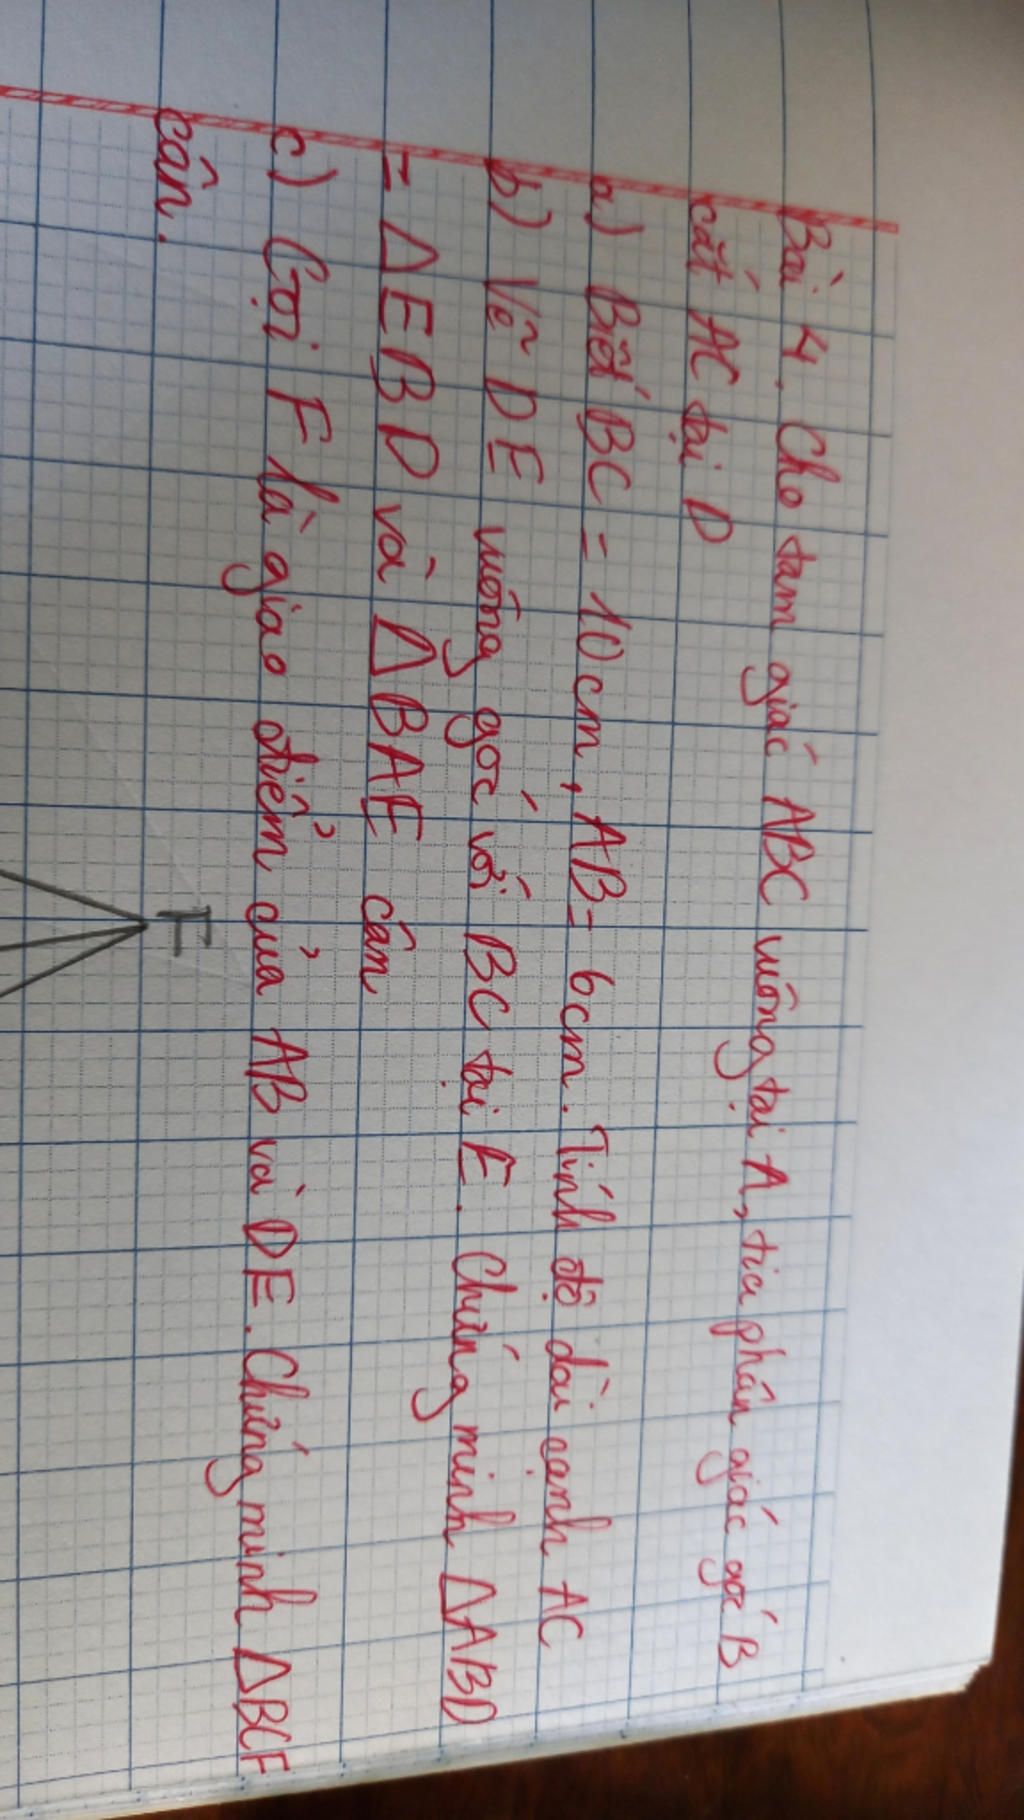 Bài 4. Cho tam giác ABC vuông tại A, tia phân giác góc B
cắt AC tại D
a) Biết BC = 10cm, AB = 6cm. Tính độ dài cạnh AC
b) Vẽ DE vuông góc với BC tại E. Chứng minh ΔABD
= ΔEBD và ΔBAE cân
c) Gọi F là giao điểm của AB và DE. Chứng minh ΔBCF
cân.
F